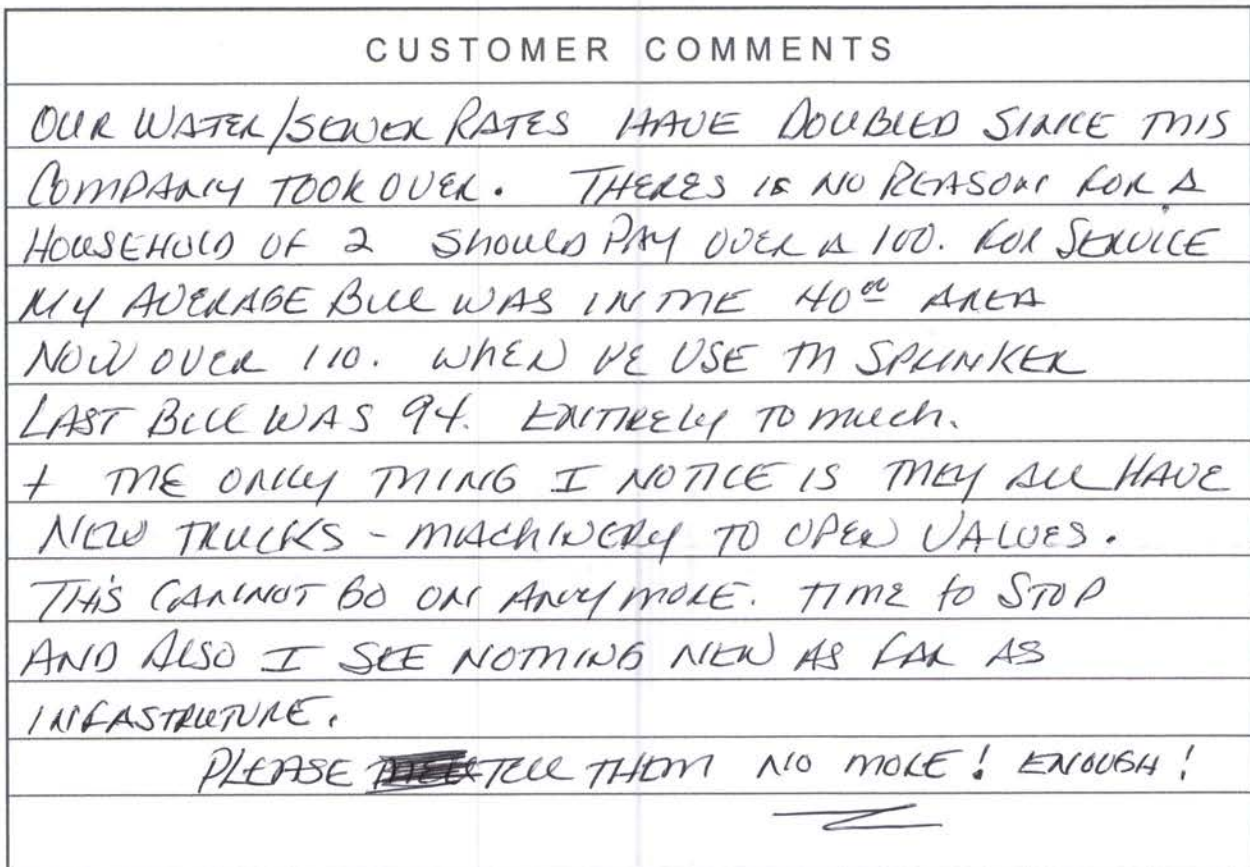 CUSTOMER COMMENTS
OUR WATER/SEWER RATES HAVE DOUBLED SINCE THIS
COMPANY TOOK OVER. THERES IS NO REASON FOR A
HOUSEHOLD OF 2 SHOULD PAY OVER A 100. FOR SERVICE
MY AVERAGE BILL WAS IN THE 40⁰⁰ AREA
NOW OVER 110. WHEN WE USE TH SPRINKER
LAST BILL WAS 94. ENTIRELY TO much.
+ THE ONLY THING I NOTICE IS THEY ALL HAVE
NEW TRUCKS - MACHINERY TO OPEN VALVES.
THIS CANNOT GO ON ANYMORE. TIME to STOP
AND ALSO I SEE NOTHING NEW AS FAR AS
INFASTRUTURE.
PLEASE TELL THEM NO MORE! ENOUGH!